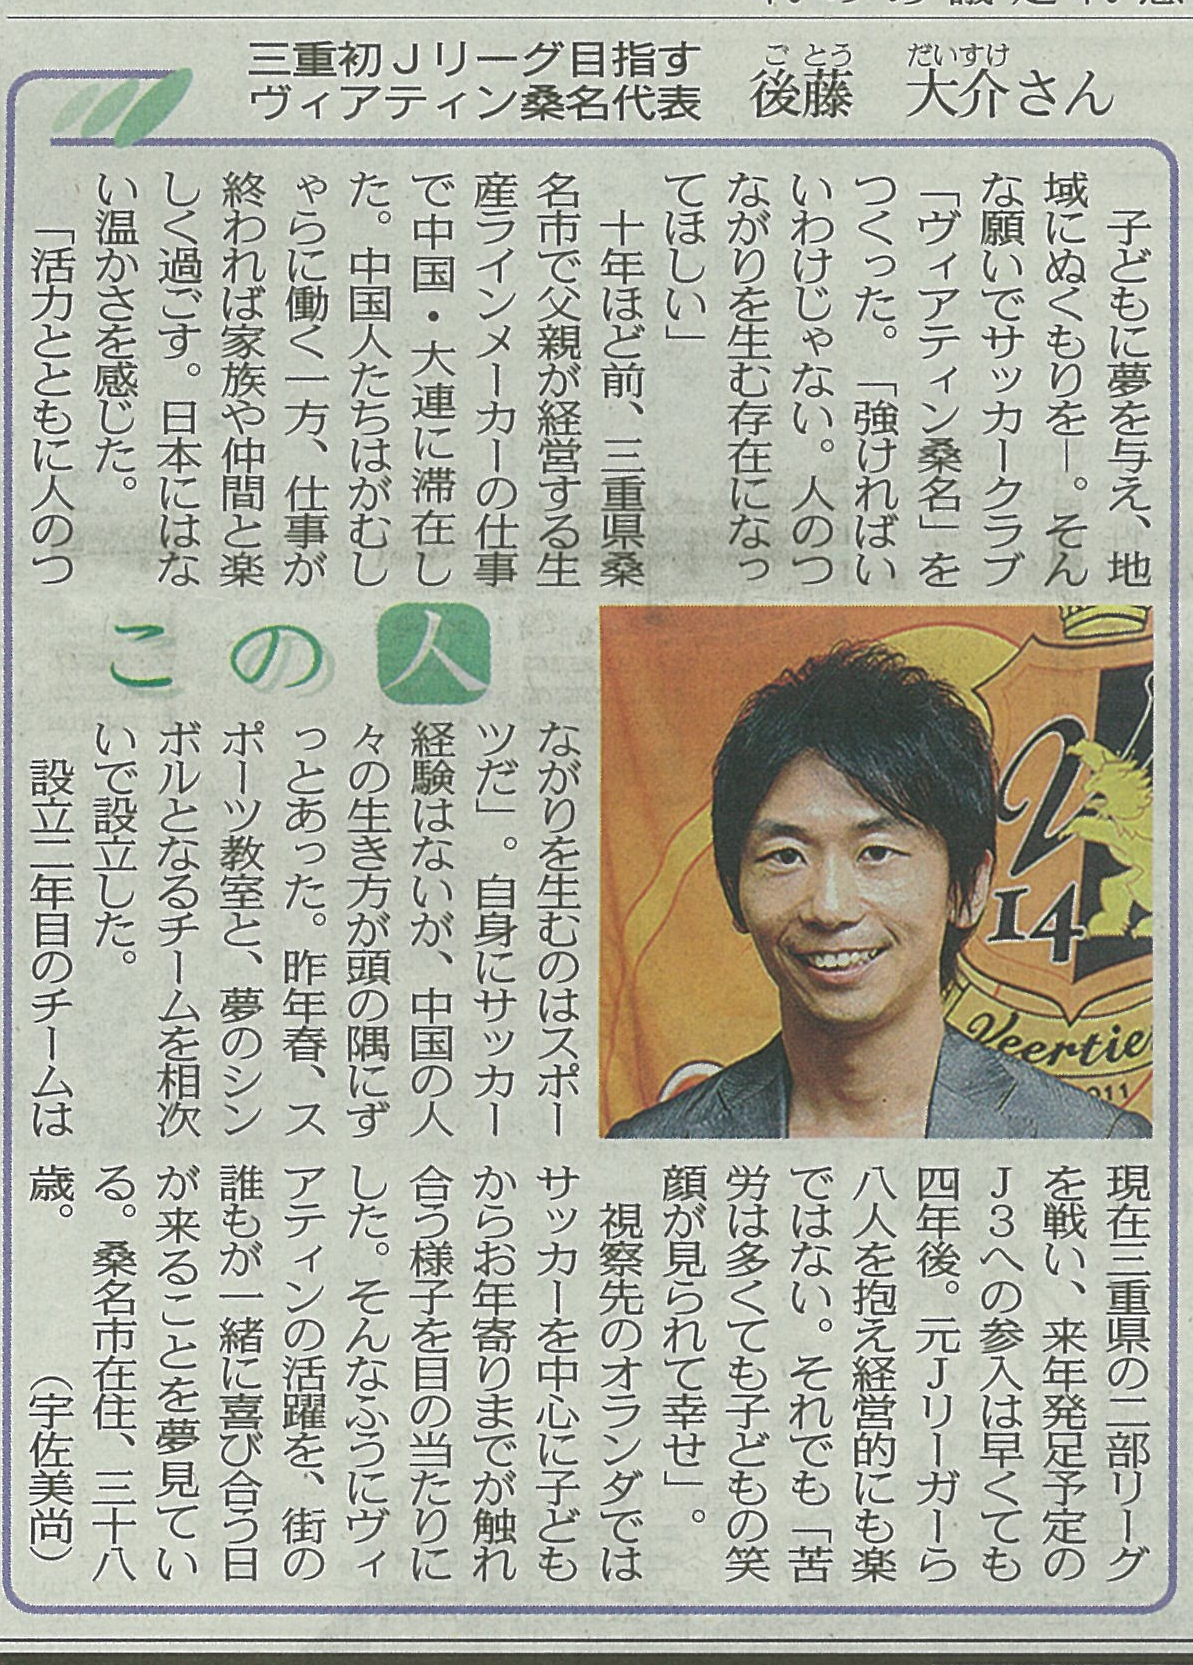 三重初Jリーグ目指す
ヴィアティン桑名代表
後藤 大介さん
ごとう だいすけ
子どもに夢を与え、地
域にぬくもりを―。そん
な願いでサッカークラブ
「ヴィアティン桑名」を
つくった。「強ければい
いわけじゃない。人のつ
ながりを生む存在になっ
てほしい」
十年ほど前、三重県桑
名市で父親が経営する生
産ラインメーカーの仕事
で中国・大連に滞在し
た。中国人たちはがむし
ゃらに働く一方、仕事が
終われば家族や仲間と楽
しく過ごす。日本にはな
い温かさを感じた。
「活力とともに人のつ
この人
ながりを生むのはスポー
ツだ」。自身にサッカー
経験はないが、中国の人
々の生き方が頭の隅にず
っとあった。昨年春、ス
ポーツ教室と、夢のシン
ボルとなるチームを相次
いで設立した。
設立二年目のチームは
現在三重県の二部リーグ
を戦い、来年発足予定の
J3への参入は早くても
四年後。元Jリーガーら
八人を抱え経営的にも楽
ではない。それでも「苦
労は多くても子どもの笑
顔が見られて幸せ」。
視察先のオランダでは
サッカーを中心に子ども
からお年寄りまでが触れ
合う様子を目の当たりに
した。そんなふうにヴィ
アティンの活躍を、街の
誰もが一緒に喜び合う日
が来ることを夢見てい
る。桑名市在住、三十八
歳。
（宇佐美尚）
V
14
Veertie